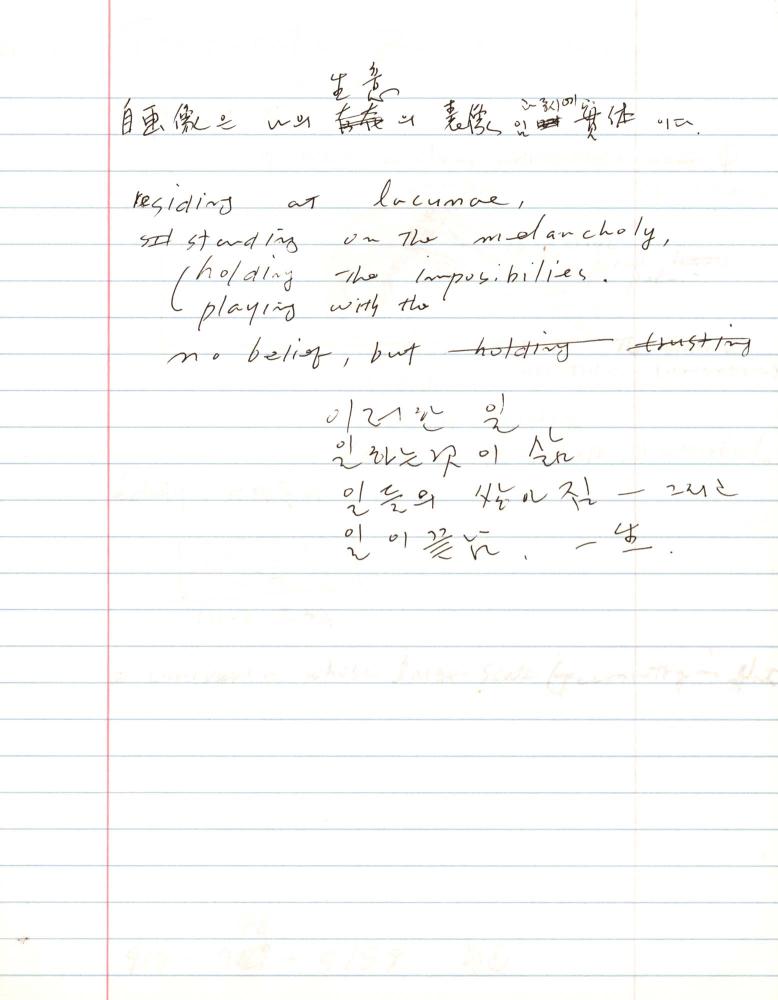 生意
自画像은 나의 存在의 表像임과 동시에 實体이다.
residing at lacunae,
standing on the melancholy,
holding the imposibilies.
playing with the
no belief, but holding trusting
이러한 일
일하는것이 삶
일들의 쌓아짐 — 그리고
일이끝남. 一生.